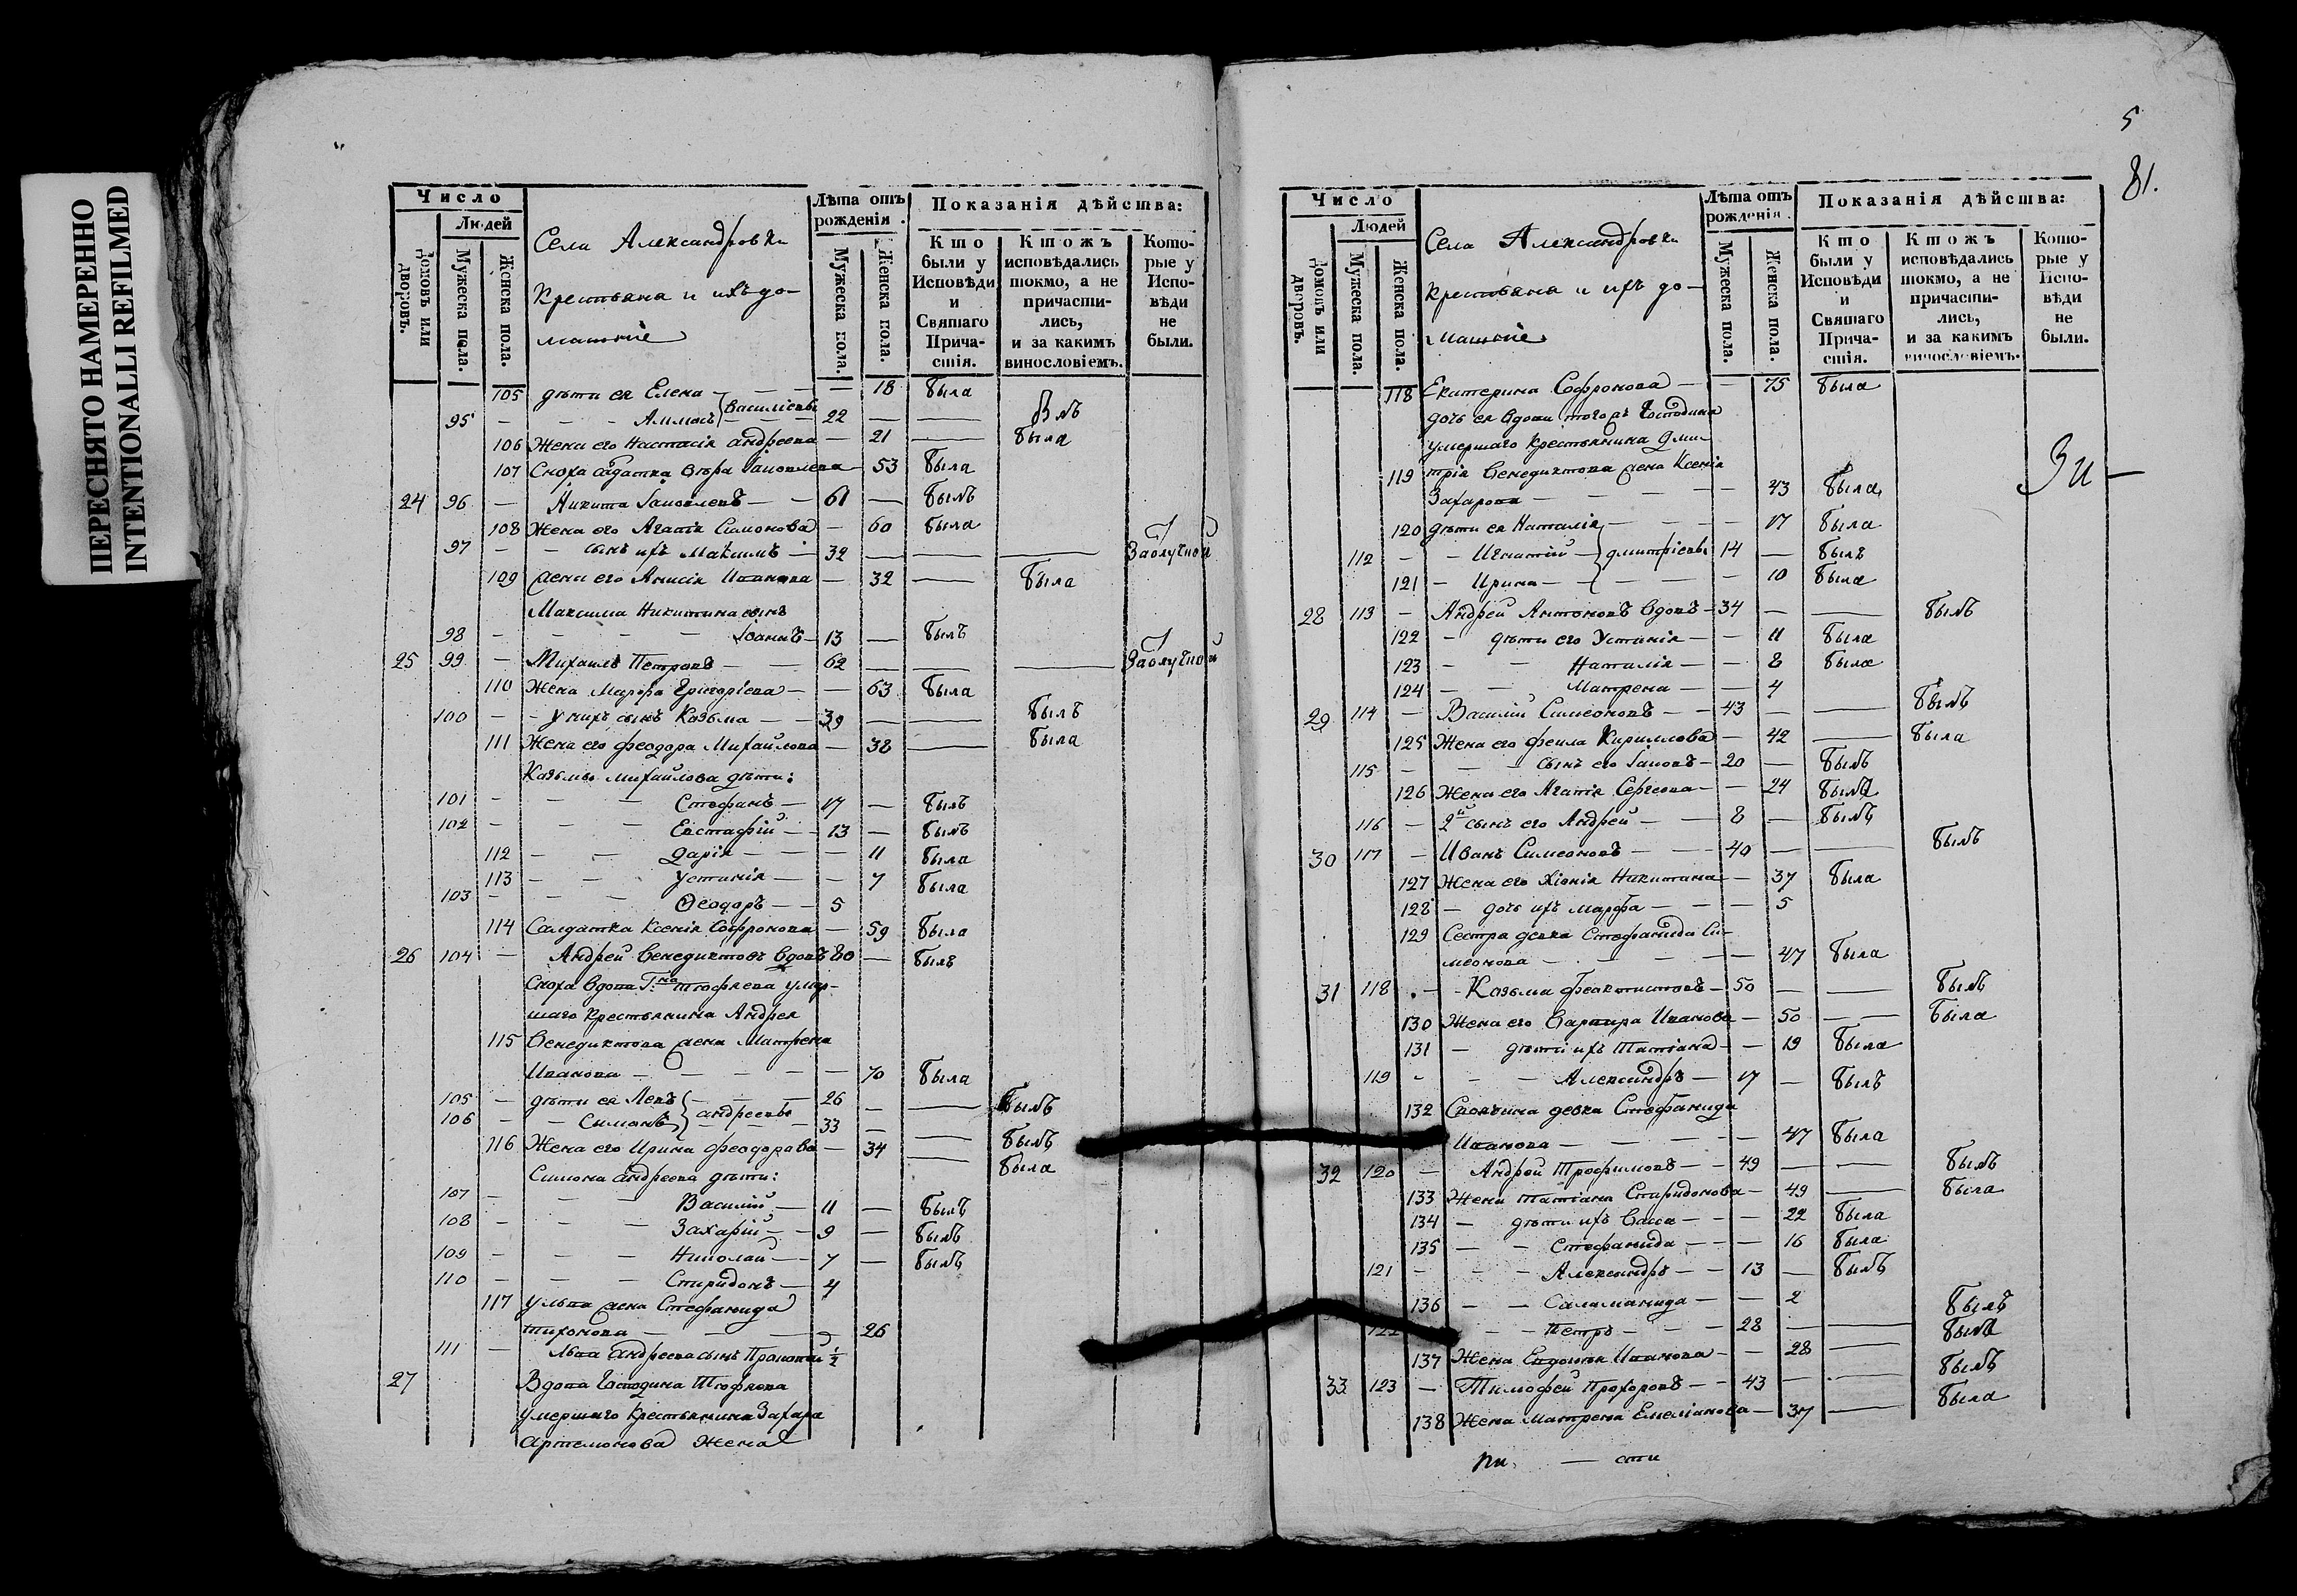 ПЕРЕСНЯТО НАМЕРЕННО
INTENTIONALLI REFILMED
Число
Людей
Домовъ или дворовъ.
Мужеска пола.
Женска пола.
Села Александровки
Крестьяна и ихъ до-
машніе
Лѣта отъ рожденія.
Мужеска пола.
Женска пола.
Показанія дѣйства:
Кто были у Исповѣди и Святаго Прича-стія.
Ктожъ исповѣдались токмо, а не причасти-лись, и за какимъ винословіемъ.
Кото-рые у Испо-вѣди не были.
105 дѣти ея Елена — — — 18 была
95 — — — Василіевы 22 — —
106 Жена его Настасія Андреева — 21 — была
107 Сноха Вѣра — 53 была
24 96 — Никита — — 61 — былъ
108 Жена его Агапія Симонова — 60 была
97 — — сынъ ихъ Максимъ — 32 — — —
109 жена его Анисія Иванова — 32 — была
Максима Никитина сынъ
98 — — — — Іоаннъ — 13 — былъ
25 99 — Михаилъ Петровъ — — 62 — — —
110 Жена Марфа Григоріева — — 63 была
100 — — у нихъ сынъ Козьма — — 39 — — былъ
111 Жена его Феодора Михайлова — 38 — была
Казьмы Михайлова дѣти:
101 — — — Стефанъ — 17 — былъ
102 — — — Евстафій — — 13 — былъ
112 — — Дарія — — — 11 была
113 — — Устинія — — — 7 была
103 — — — Ѳеодоръ — — 5
114 Салдатка Ксенія Софронова — 59 была
26 104 — Андрей Венедиктовъ вдовъ 80 — былъ
Сноха вдова Г:на Тюфяева умер-
шаго крестьянина Андрея
115 Венедиктова жена Матрена
Иванова — — — — — 70 была
105 — дѣти ея Левъ — — — 26 — — былъ
106 — — Симонъ Андреевы — — — 33 — — былъ
116 Жена его Ирина Феодорова — 34 — была
Симона Андреева дѣти:
107 — — — Василій — 11 — былъ
108 — — — Захарій — — 9 — былъ
109 — — — Николай — — 7 — былъ
110 — — — Спиридонъ — 4
117 у Льва жена Стефанида
Тихонова — — — — 26
111 — Льва Андреева сынъ ½
27 Вдова Господина Тюфяева
умершаго крестьянина Захара
Артемонова жена
5
81.
Число
Людей
Домовъ или дворовъ.
Мужеска пола.
Женска пола.
Села Александровки
Крестьяна и ихъ до-
машніе
Лѣта отъ рожденія.
Мужеска пола.
Женска пола.
Показанія дѣйства:
Кто были у Исповѣди и Святаго Прича-стія.
Ктожъ исповѣдались токмо, а не причасти-лись, и за какимъ винословіемъ.
Кото-рые у Испо-вѣди не были.
118 Екатерина Софронова — — 75 была
дочь ея вдова тогожъ Господина
умершаго крестьянина Дми-
119 трія Венедиктова жена Ксенія
Захарова — — — — — 43 была
120 дѣти ея Наталія — — — — 17 была
112 — — Игнатій — Дмитріевы 14 — былъ
121 — Ирина — — — — — 10 была
28 113 — Андрей Антоновъ вдовъ — 34 — — былъ
122 — дѣти его Устинія — — 11 была
123 — — Наталія — — 8 была
124 — — Матрена — — 4
29 114 — Василій Симеоновъ — — 43 — — былъ
125 Жена его Фекла Кириллова — 42 — была
115 — — — сынъ его Іаковъ — 20 — былъ
126 Жена его Агапія Сергеева — — 24 была
116 — 2й сынъ его Андрей — — 8 — былъ
30 117 — Иванъ Симеоновъ — — — 40 — — былъ
127 Жена его Хіонія Никитина — — 37 была
128 — дочь ихъ Марфа — — — 5
129 Сестра девка Стефанида Си-
меонова — — — — — 47 была
31 118 — Козьма Феоктистовъ — 50 — — былъ
130 Жена его Варвара Иванова — 50 — — была
131 — дѣти ихъ Татіана — — 19 была
119 — — — Александръ — 17 — былъ
132 девка Стефанида
Иванова — — — — — 47 была
32 120 — Андрей Трофимовъ — — 49 — — былъ
133 Жена Татіана Спиридонова — 49 — была
134 — дѣти ихъ Васса — — — 22 была
135 — — Стефанида — — — 16 была
121 — — — Александръ — — 13 — былъ
136 — — Саламанида — — 2
122 — — Петръ — — — 28 — — былъ
137 Жена Евдокія Иванова — — 28 — была
33 123 — Тимофей Прохоровъ — — 43 — — былъ
138 Жена Матрена Емеліанова — 37 — была
сти